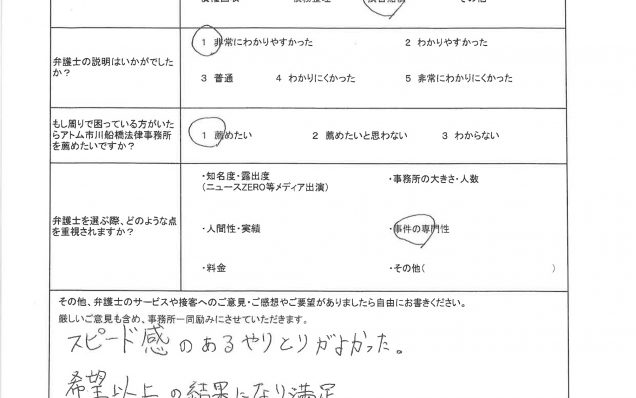 弁護士の説明はいかがでした
か？
1 非常にわかりやすかった 2 わかりやすかった
3 普通 4 わかりにくかった 5 非常にわかりにくかった
もし周りで困っている方がいた
らアトム市川船橋法律事務所
を薦めたいですか？
1 薦めたい 2 薦めたいと思わない 3 わからない
弁護士を選ぶ際、どのような点
を重視されますか？
・知名度・露出度
(ニュースZERO等メディア出演)
・事務所の大きさ・人数
・人間性・実績
・事件の専門性
・料金
・その他( )
その他、弁護士のサービスや接客へのご意見・ご感想やご要望がありましたら自由にお書きください。
厳しいご意見も含め、事務所一同励みにさせていただきます。
スピード感のあるやりとりがよかった。
希望以上の結果になり満足